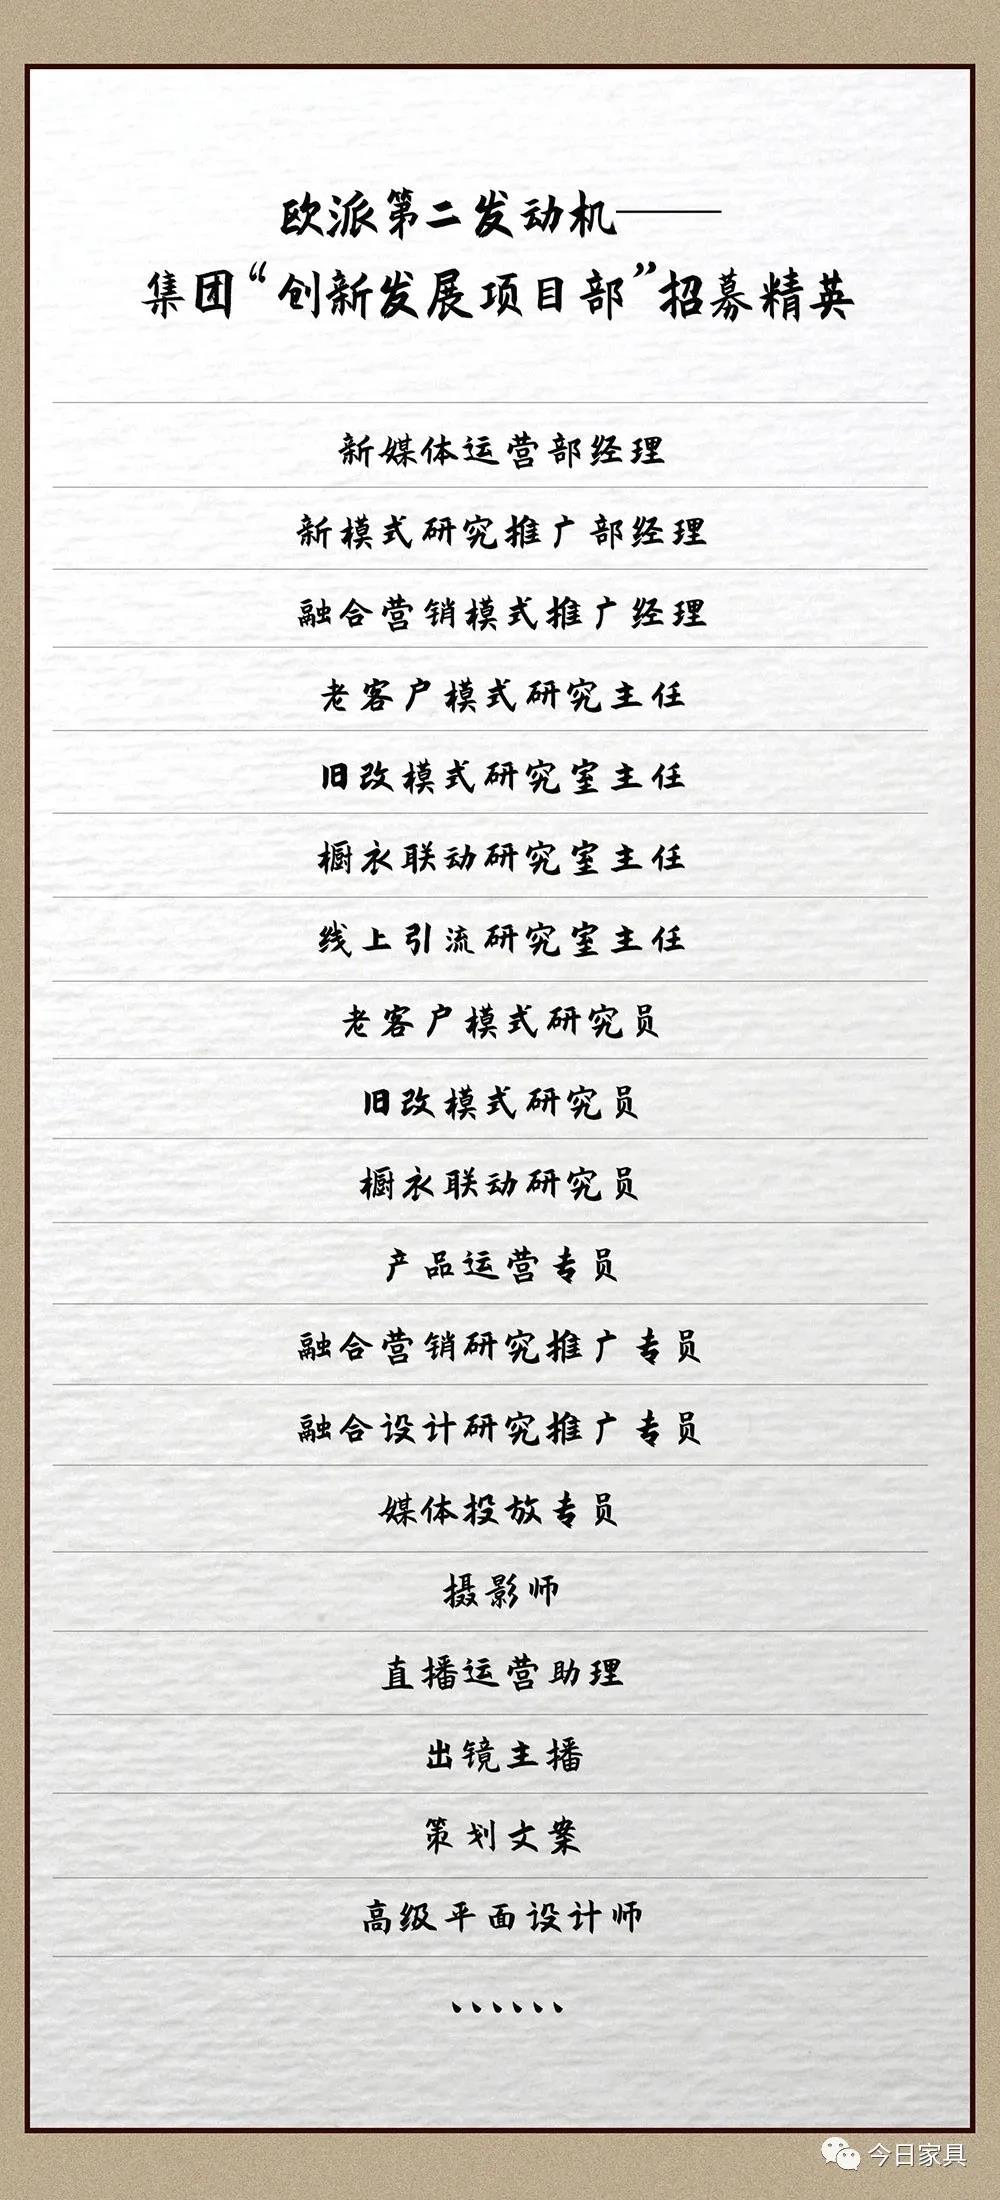 欧派第二发动机——
集团“创新发展项目部”招募精英
新媒体运营部经理
新模式研究推广部经理
融合营销模式推广经理
老客户模式研究主任
旧改模式研究室主任
橱衣联动研究室主任
线上引流研究室主任
老客户模式研究员
旧改模式研究员
橱衣联动研究员
产品运营专员
融合营销研究推广专员
融合设计研究推广专员
媒体投放专员
摄影师
直播运营助理
出镜主播
策划文案
高级平面设计师
......
今日家具